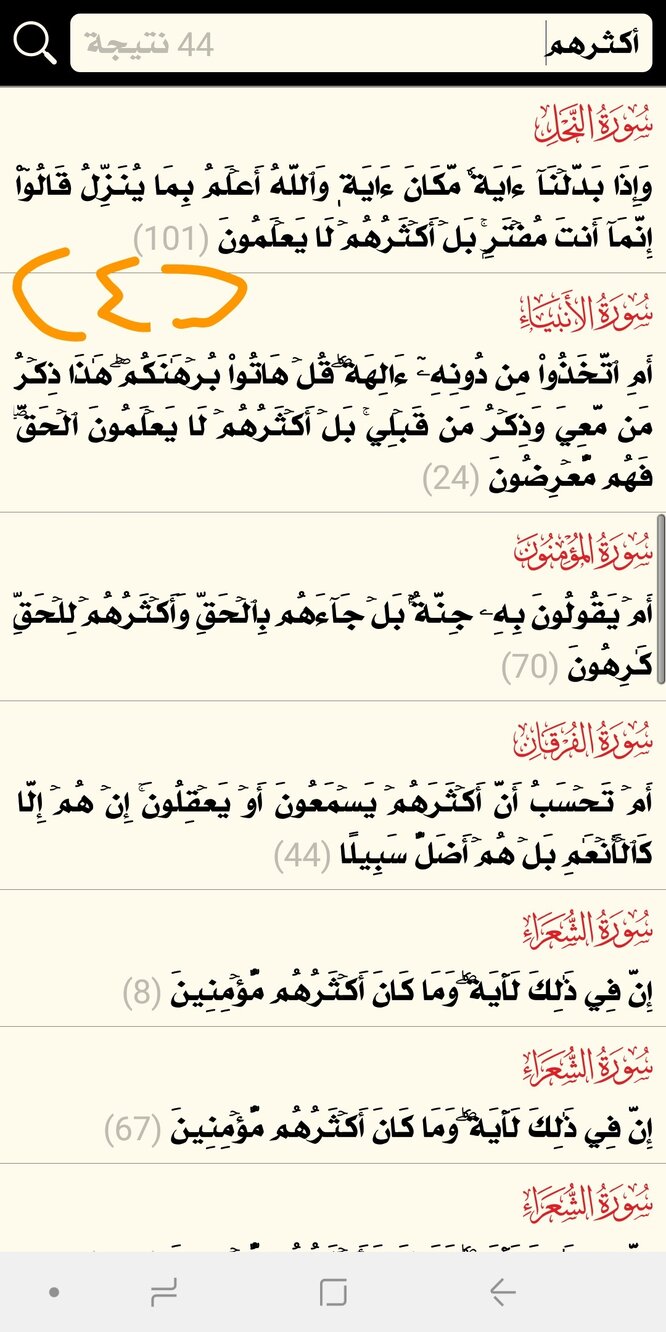 أكثرهم 44 نتيجة
سُورَةُ النَّحْلِ
وَإِذَا بَدَّلْنَآ ءَايَةٗ مَّكَانَ ءَايَةٖ وَٱللَّهُ أَعْلَمُ بِمَا يُنَزِّلُ قَالُوٓاْ
إِنَّمَآ أَنتَ مُفْتَرِۭۚ بَلْ أَكْثَرُهُمْ لَا يَعْلَمُونَ (101)
(٤)
سُورَةُ الأَنبِيَاءِ
أَمِ ٱتَّخَذُواْ مِن دُونِهِۦٓ ءَالِهَةٗۖ قُلْ هَاتُواْ بُرْهَٰنَكُمْۖ هَٰذَا ذِكْرُ
مَن مَّعِيَ وَذِكْرُ مَن قَبْلِيۚ بَلْ أَكْثَرُهُمْ لَا يَعْلَمُونَ ٱلْحَقَّۖ
فَهُم مُّعْرِضُونَ (24)
سُورَةُ المُؤْمِنُونَ
أَمْ يَقُولُونَ بِهِۦ جِنَّةُۢۚ بَلْ جَآءَهُم بِٱلْحَقِّ وَأَكْثَرُهُمْ لِلْحَقِّ
كَٰرِهُونَ (70)
سُورَةُ الفُرْقَانِ
أَمْ تَحْسَبُ أَنَّ أَكْثَرَهُمْ يَسْمَعُونَ أَوْ يَعْقِلُونَۚ إِنْ هُمْ إِلَّا
كَٱلْأَنْعَٰمِ بَلْ هُمْ أَضَلُّ سَبِيلًا (44)
سُورَةُ الشُّعَرَاءِ
إِنَّ فِي ذَٰلِكَ لَأٓيَةٗۖ وَمَا كَانَ أَكْثَرُهُم مُّؤْمِنِينَ (8)
سُورَةُ الشُّعَرَاءِ
إِنَّ فِي ذَٰلِكَ لَأٓيَةٗۖ وَمَا كَانَ أَكْثَرُهُم مُّؤْمِنِينَ (67)
سُورَةُ الشُّعَرَاءِ